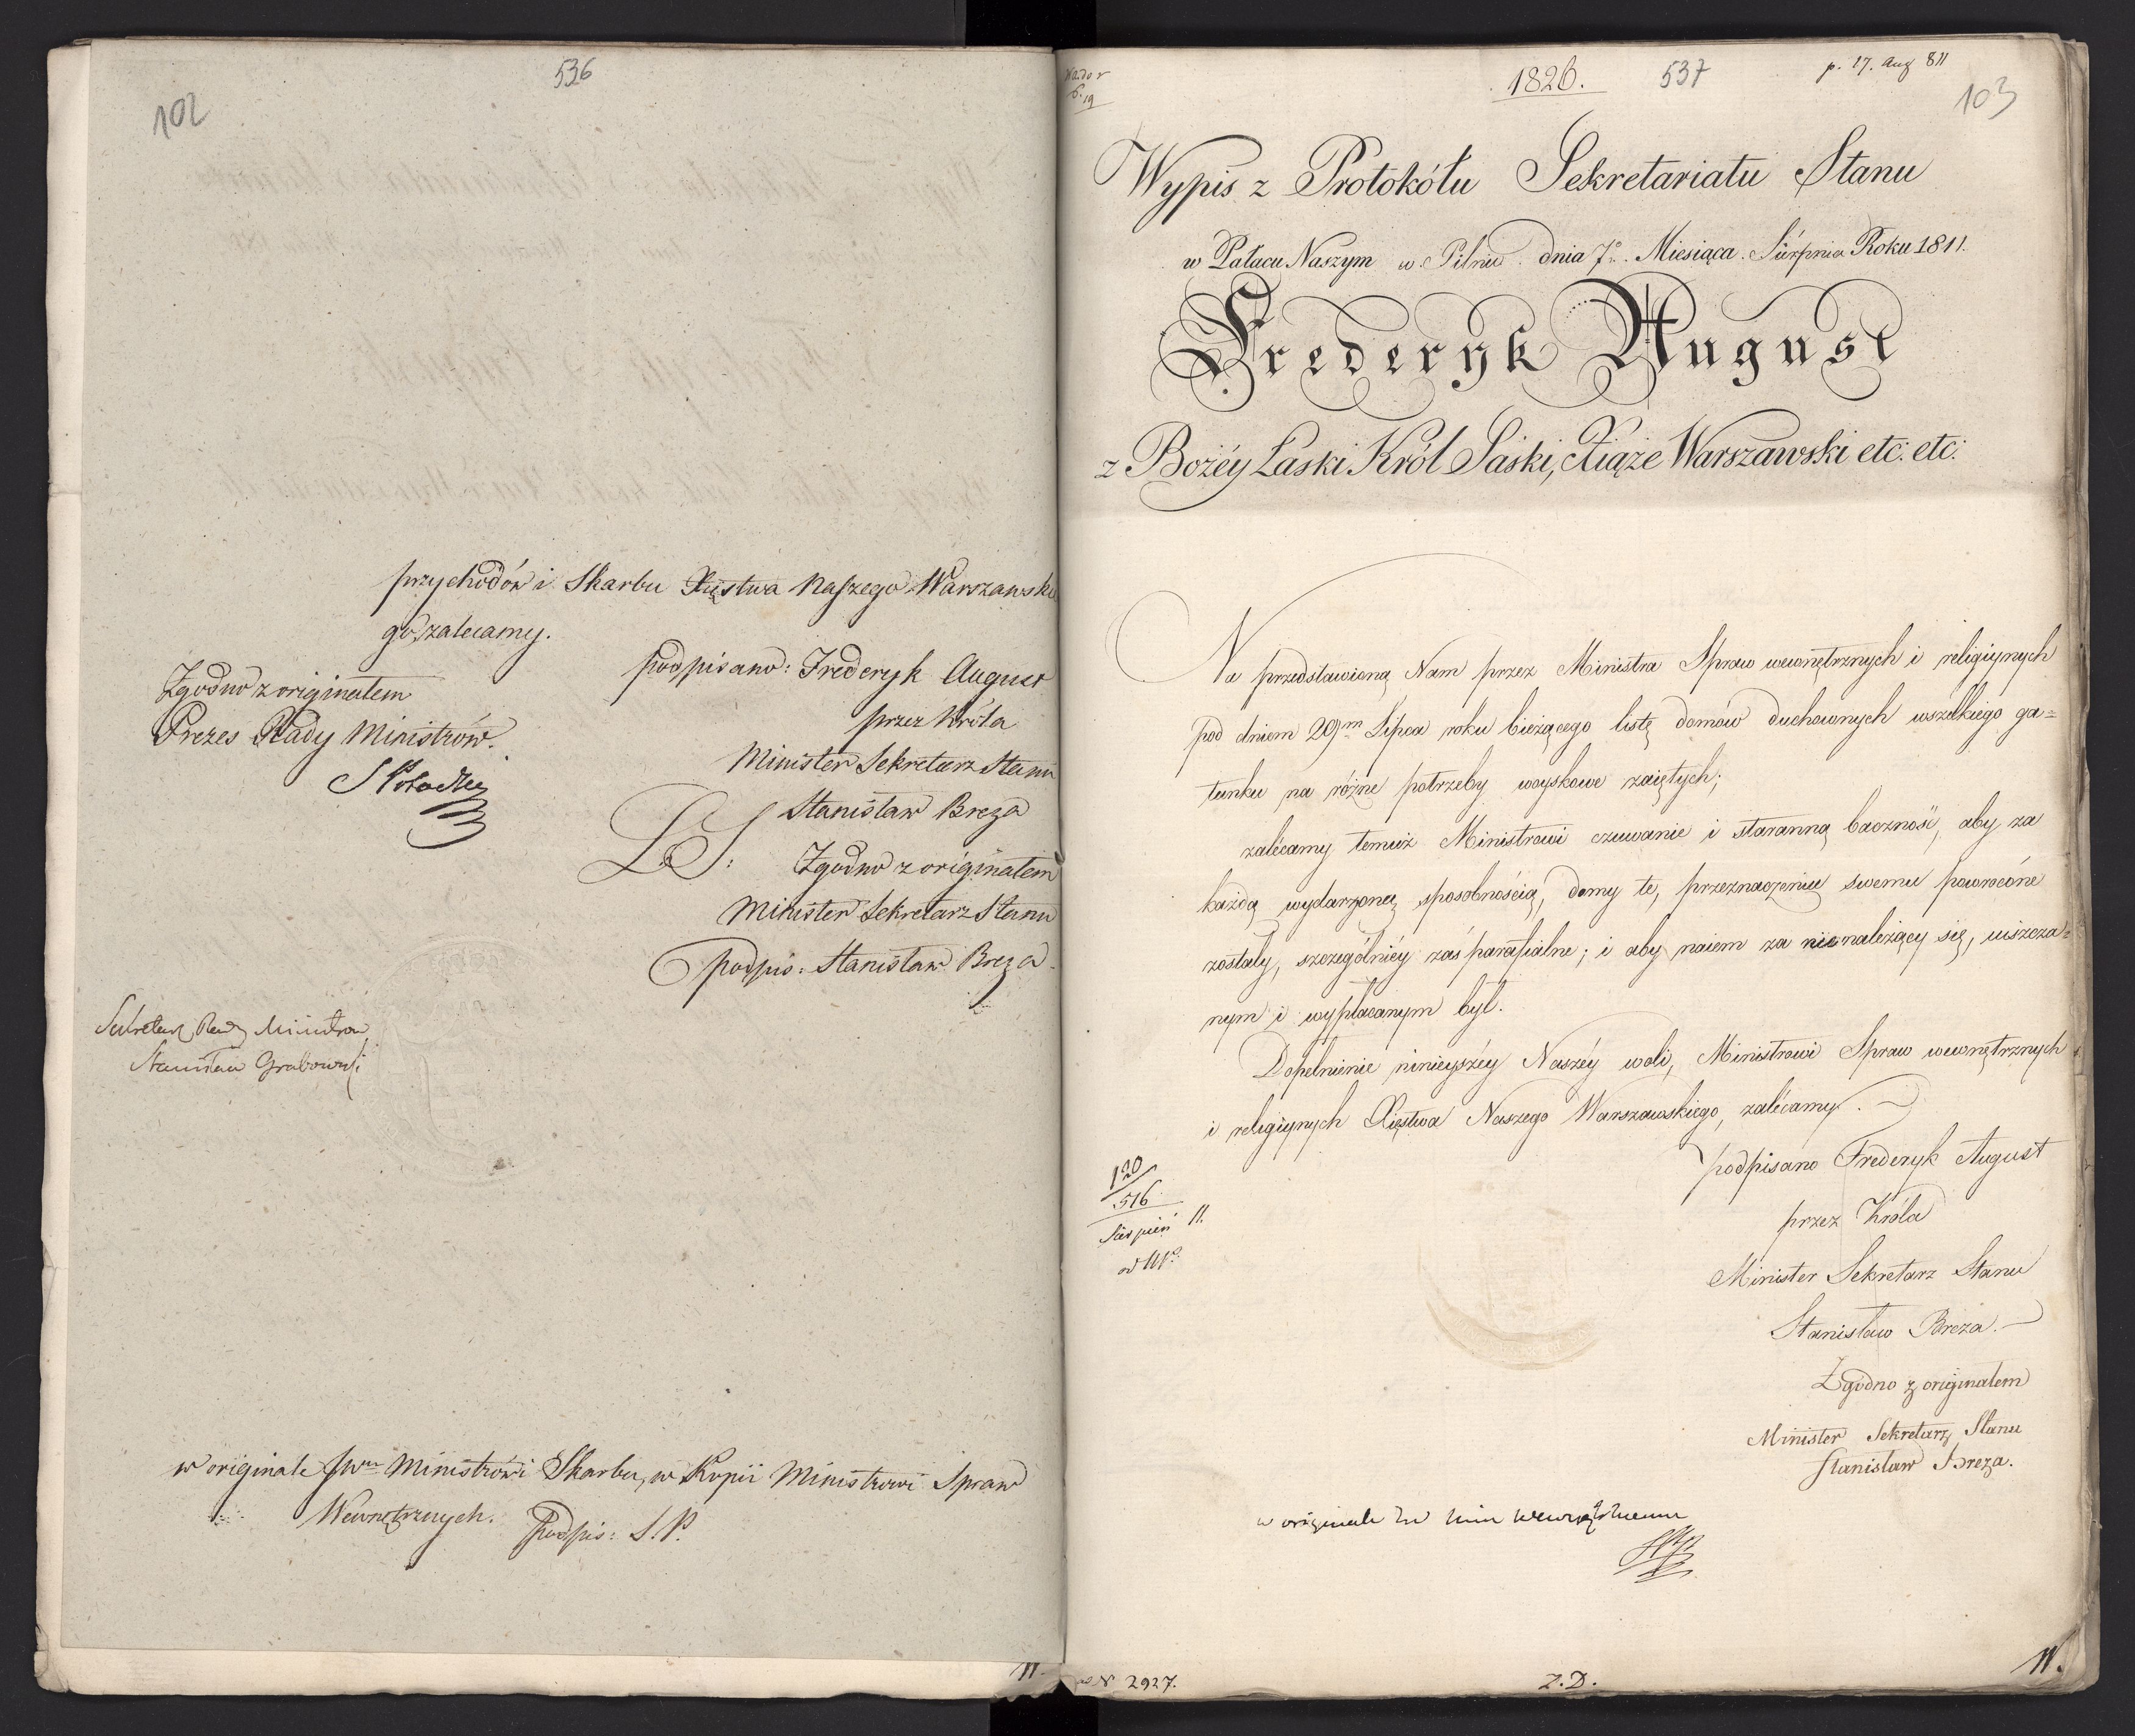 536
102
przychodów i Skarbu Xięstwa Naszego Warszawskie
go, zalecamy.
podpisano: Frederyk August
przez Króla
Minister Sekretarz Stanu
Stanisław Breza
L.S.
Zgodno z originałem
Minister Sekretarz Stanu
podpis: Stanisław Breza.
Zgodno z originałem
Prezes Rady Ministrów.
S Potocki
Sekretarz Rady Ministrow
Stanisław Grabowski
w originale Ministrówi Skarbu, w Kopii Ministrowi Spraw
Wewnętrznych. Podpis: S.P.
1826.
537
p. 17. Aug 811
103
Wypis z Protokółu Sekretariatu Stanu
w Pałacu Naszym w Pilniz dnia 7o. Miesiąca Sierpnia Roku 1811.
Frederyk August
z Bożéy Łaski Król Saski, Xiąże Warszawski etc: etc:
Na przedstawioną Nam przez Ministra Spraw wewnętrznych i religiynych
pod dniem 29m Lipca roku bieżącego listę domów duchownych wszelkiego ga=
tunku na różne potrzeby woyskowe zaiętych;
zalécamy temuż Ministrowi czuwanie i staranną baczność, aby za
każdą wydarzoną sposobnością, domy te, przeznaczeniu swemu powrócone
zostały, szczególniéy zaś parafialne; i aby naiem za nie należący się, uiszcza=
nym i wypłacanym był.
Dopełnienie ninieyszéy Naszéy woli, Ministrowi Spraw wewnętrznych
i religiynych Xięstwa Naszego Warszawskiego, zalécamy.
podpisano Frederyk August
przez Króla
Minister Sekretarz Stanu
Stanisław Breza.
Zgodno z originałem
Minister Sekretarz Stanu
Stanisław Breza.
120
516
Sierpień 11.
w originale Min wewnętrznemu
N 2927.
Z.D.